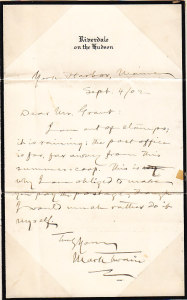 Riverdale
on the Hudson
York Harbor, Maine
Sept. 4/02
Dear Mrs. Grant:
I am out of stamps,
it is raining; the post office
is far, far away from this
summer-coop. This is
why I am obliged to make
you pay the postage, though
I would much rather do it
myself.
Truly Yours
Mark Twain